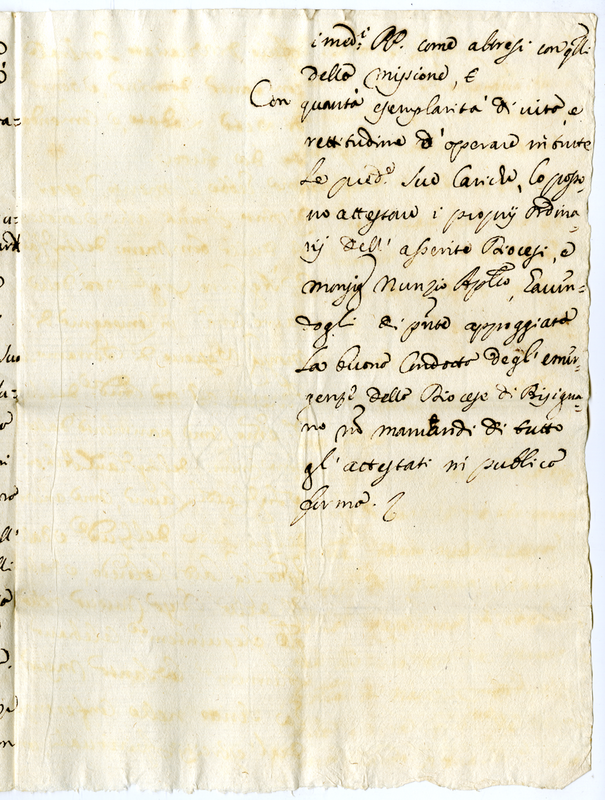 i med.i PP. come altresi con q'lli
della Missione, e
Con quanta esemplarità di vita, e
rettitudine d'operare in tutte
le pred.e sue Cariche, lo posso-
no attestare i proprij Ordina-
rij dell' asserite Diocesi, e
Monsig Nunzio Aplico,
dogli di pnte appoggiata
la buona Condotta degl' emer-
genzi della Diocese di Bisigna-
no di tutto
gl' attestati in publica
forma.